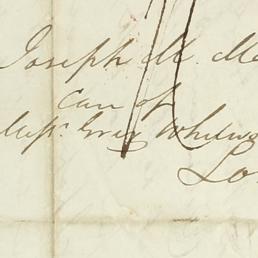 Joseph M. Mc
Care of
Messrs. Gray Whitw
Lo